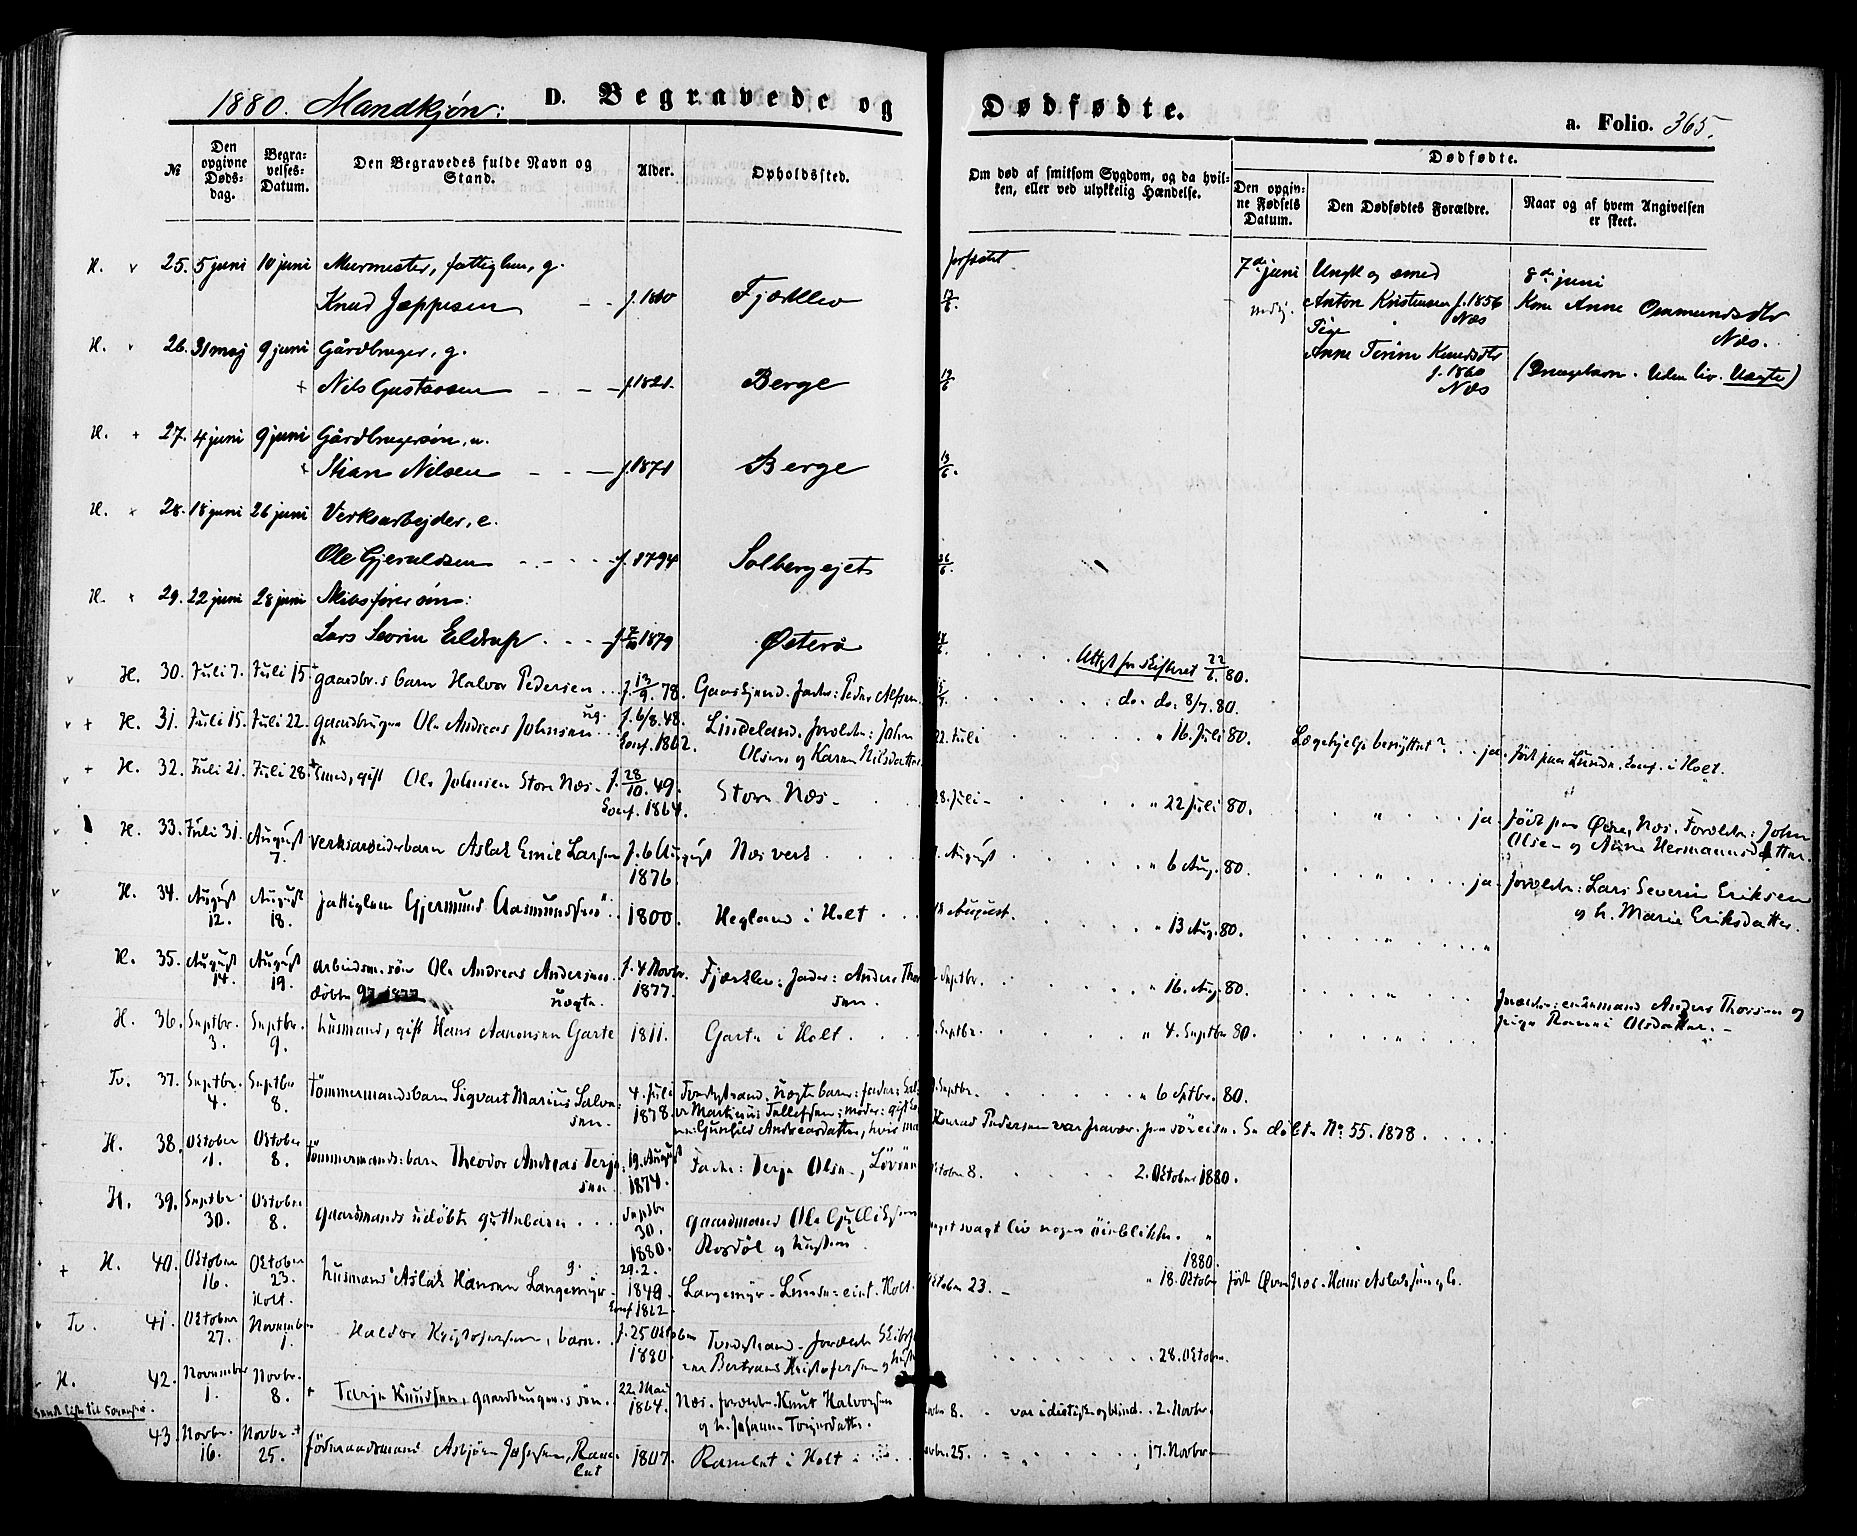 1880. Mandkjøn: D. Begravede og
Dødfødte. a. Folio. 365.
No
Den opgivne Døds-dag.
Begra-velses-Datum.
Den Begravedes fulde Navn og Stand.
Alder.
Opholdssted.
Om død af smitsom Sygdom, og da hvil-
ken, eller ved ulykkelig Hændelse.
Dødfødte.
Den opgiv-ne Fødsels Datum.
Den Dødfødtes Forældre.
Naar og af hvem Angivelsen er skeet.
H. 25. 5 juni 10 juni Murmester, fattiglem, g.
Knud Jeppesen f. 1810 Fjærklev
7de juni Ungk og smed 8de juni
Anton Kristensen f. 1856 Kone Anne Osmundsdtr
Næs Næs.
Pige
Anne Terine Knudsdtr
f. 1860 (Drengebarn. Uden liv. Uægte)
Næs
H. 26. 31 maj 9 juni Gårdbruger, g.
Nils Gustavsen f. 1821. Berge
H. 27. 4 juni 9 juni Gårdbrugersøn, u.
Stian Nilsen f. 1871 Berge
H. 28. 18 juni 26 juni Verksarbejder, e.
Ole Gjeruldsen f. 1794 Solbergejet 26/6
H. 29. 22 juni 28 juni Skibsførersøn:
Lars Severin Eldrup 1879 Østerå
Attest fra skifteret 22/6 80.
H. 30. Juli 7. Juli 15 gaardbr.s barn Halvor Pedersen f. 13/9. 78. fader: Peder Alfsen
do. do. 8/7. 80.
H. 31. Juli 15. Juli 22. gaardbruger Ole Andreas Johnsen ug. f. 6/8. 48. Lindeland. forældre: John
Conf. 1862. Olsen og Karen Nilsdatter
22. Juli " 16. Juli 80. Lægehjelp benyttet? ja. født paa Lunde. Conf. i Holt.
H. 32. Juli 21. Juli 28. Smed, gift Ole Johnsen Store Næs f. 28/10. 49. Store Næs
Conf. 1864.
28. Juli " 22 Juli 80. " ja. født paa Øvre Næs. Forældre: John
Olsen og Anne Hermannsdatter.
H. 33. Juli 31. August 7. verksarbeiderbarn Aslak Emil Larsen f. 6 August Næs verk
1876.
August " 6 Aug. 80. " ja. forældre: Lars Severin Eriksen
og h. Marie Eriksdatter.
H. 34. August 12. August 18. fattiglem Gjermund Aasmundsen 1800. Hegland i Holt
18 August. " 13 Aug. 80. "
H. 35. August 14. August 19. arbeidsm. søn Ole Andreas Andersen f. 4 Novbr. Fjærklev: fader: Anders Thor
døbte 97. 1877 uægte. 1877. sen.
Septbr. " 16. Aug. 80. " forældre: enkemand Anders Thorsen og
pige Olsdatter.
H. 36. Septbr. 3. Septbr. 9. husmand, gift Hans Aanonsen Garte 1811. Garte i Holt.
Septbr. " 4. Septbr 80. "
Tv. 37. Septbr. 4. Septbr 8. tømmermandsbarn Sigvart Marius Salve
sen. 4. Juli 1878. Tvedestrand. Uægte barn: fader: Sal-
ve Martinus Tellefsen; moder: gift
Gunhild Andreasdatter, hvis ma
Septbr. " 6 Sptbr. 80.
Konrad Pedersen var fravær. døbte No. 55. 1878.
H. 38. Oktober 1. Oktober 8. tømmermands: barn Theodor Andreas Terje
sen. 19. August 1874. Fader: Terje Olsen, Løvøen
Oktober 8. 2. Oktober 1880.
H. 39. Septbr. 30. Oktober 8. gaardmands udøbte guttebarn Septbr 30. 1880. gaardmand Ole Gulliksen
Rosdøl og hustru
noget svagt liv nogen øieblikke. "
H. 40. Oktober 16. Oktober 23. Holt. husmand Aslak Hansen Langemyr g. 29. 2. 1849 Conf 1862. Langemyr - Lunde: eint. Holt.
Oktober 23. 1880. " 18. Oktober født Øvre Næs. Hans Aslaksen
Tv. 41. Oktober 27. November 1. Haldor Kristofersen, barn. f. 25 Oktober 1880 Tvedestrand - forældre
Bertrand Kristofersen og hustru
" 28. Oktober.
H. 42. November 1. Novbr. 8. Terje Knudsen, gaardbrugers søn. 22. Mai 1864 Næs. forældre. Knut Halvorsen
og h. Johanne Torjersdatter.
Novbr 8. var idiotisk og blind. 2. Novbr.
43. Novbr. 16. Novbr. 25. føderaadsmand Asbjørn Josefsen, 1807. i Holt
Novbr. 25. " " " 17. Novbr